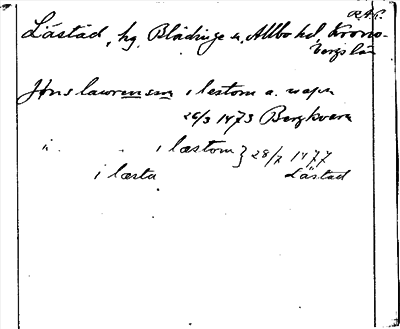 R.A.P.
Låstad, hg, Blädinge s. Allbo hd, Krono-
bergs län
Jöns lawrensson i lestom a. wapn
26/3 1473 Bergkvara
" " i læstom } 28/7 1477
i læsta Låstad